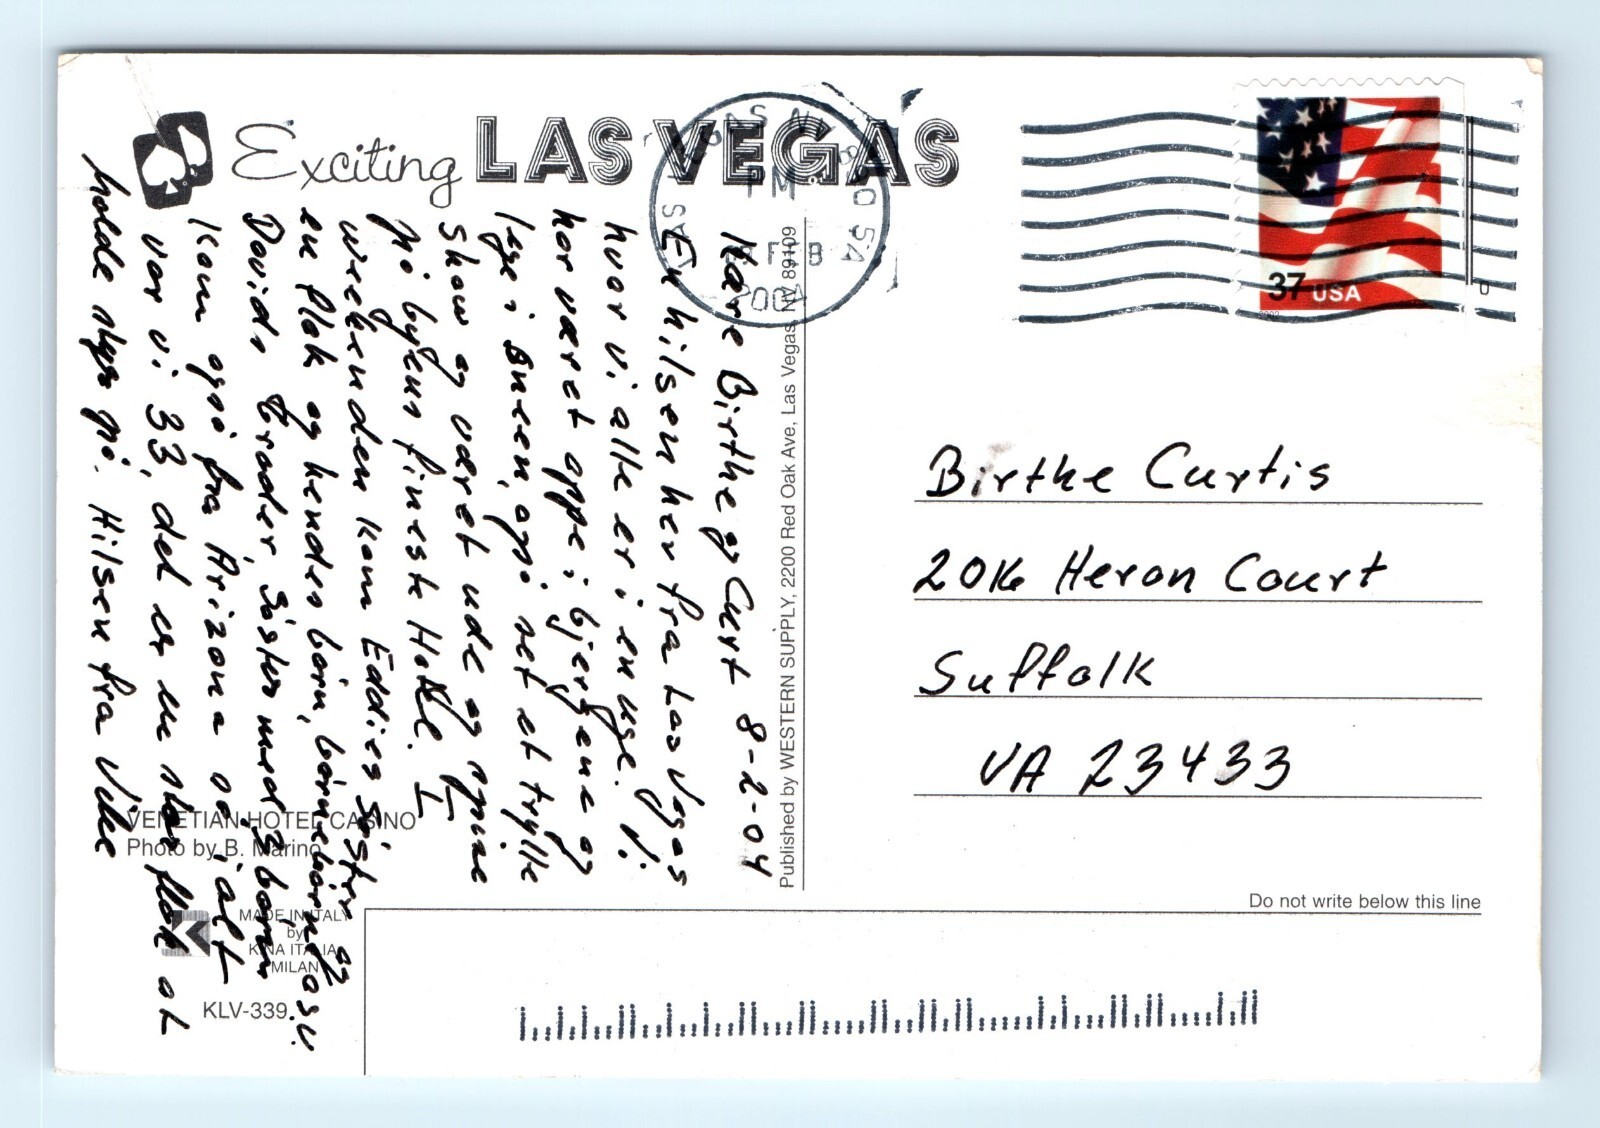 Exciting LAS VEGAS
Kære Birthe og Curt 8-2-04
En hilsen her fra Las Vegas
hvor vi alle er i en uge. Vi
har været oppe i bjergene og
lege i sneen, også set et trylle
show og været ude og spise
på byens fineste Hotel. I
weekenden kom Eddies søster og
en flok og hendes børn, børnebørn osv.
Davids broder, søster med 3 børn
Kom også fra Arizona så i alt
var vi 33, det er en stor flok at
holde styr på. Hilsen fra Vibe
VENETIAN HOTEL CASINO
Photo by B. Marino
MADE IN ITALY
by
KINA ITALIA
MILAN
KLV-339
Published by WESTERN SUPPLY, 2200 Red Oak Ave, Las Vegas, NV 89109
PM
FEB
2004
37 USA
2002
Birthe Curtis
2016 Heron Court
Suffolk
VA 23433
Do not write below this line